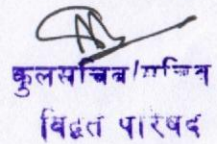 कुलसचिव/सचिव
विद्वत परिषद